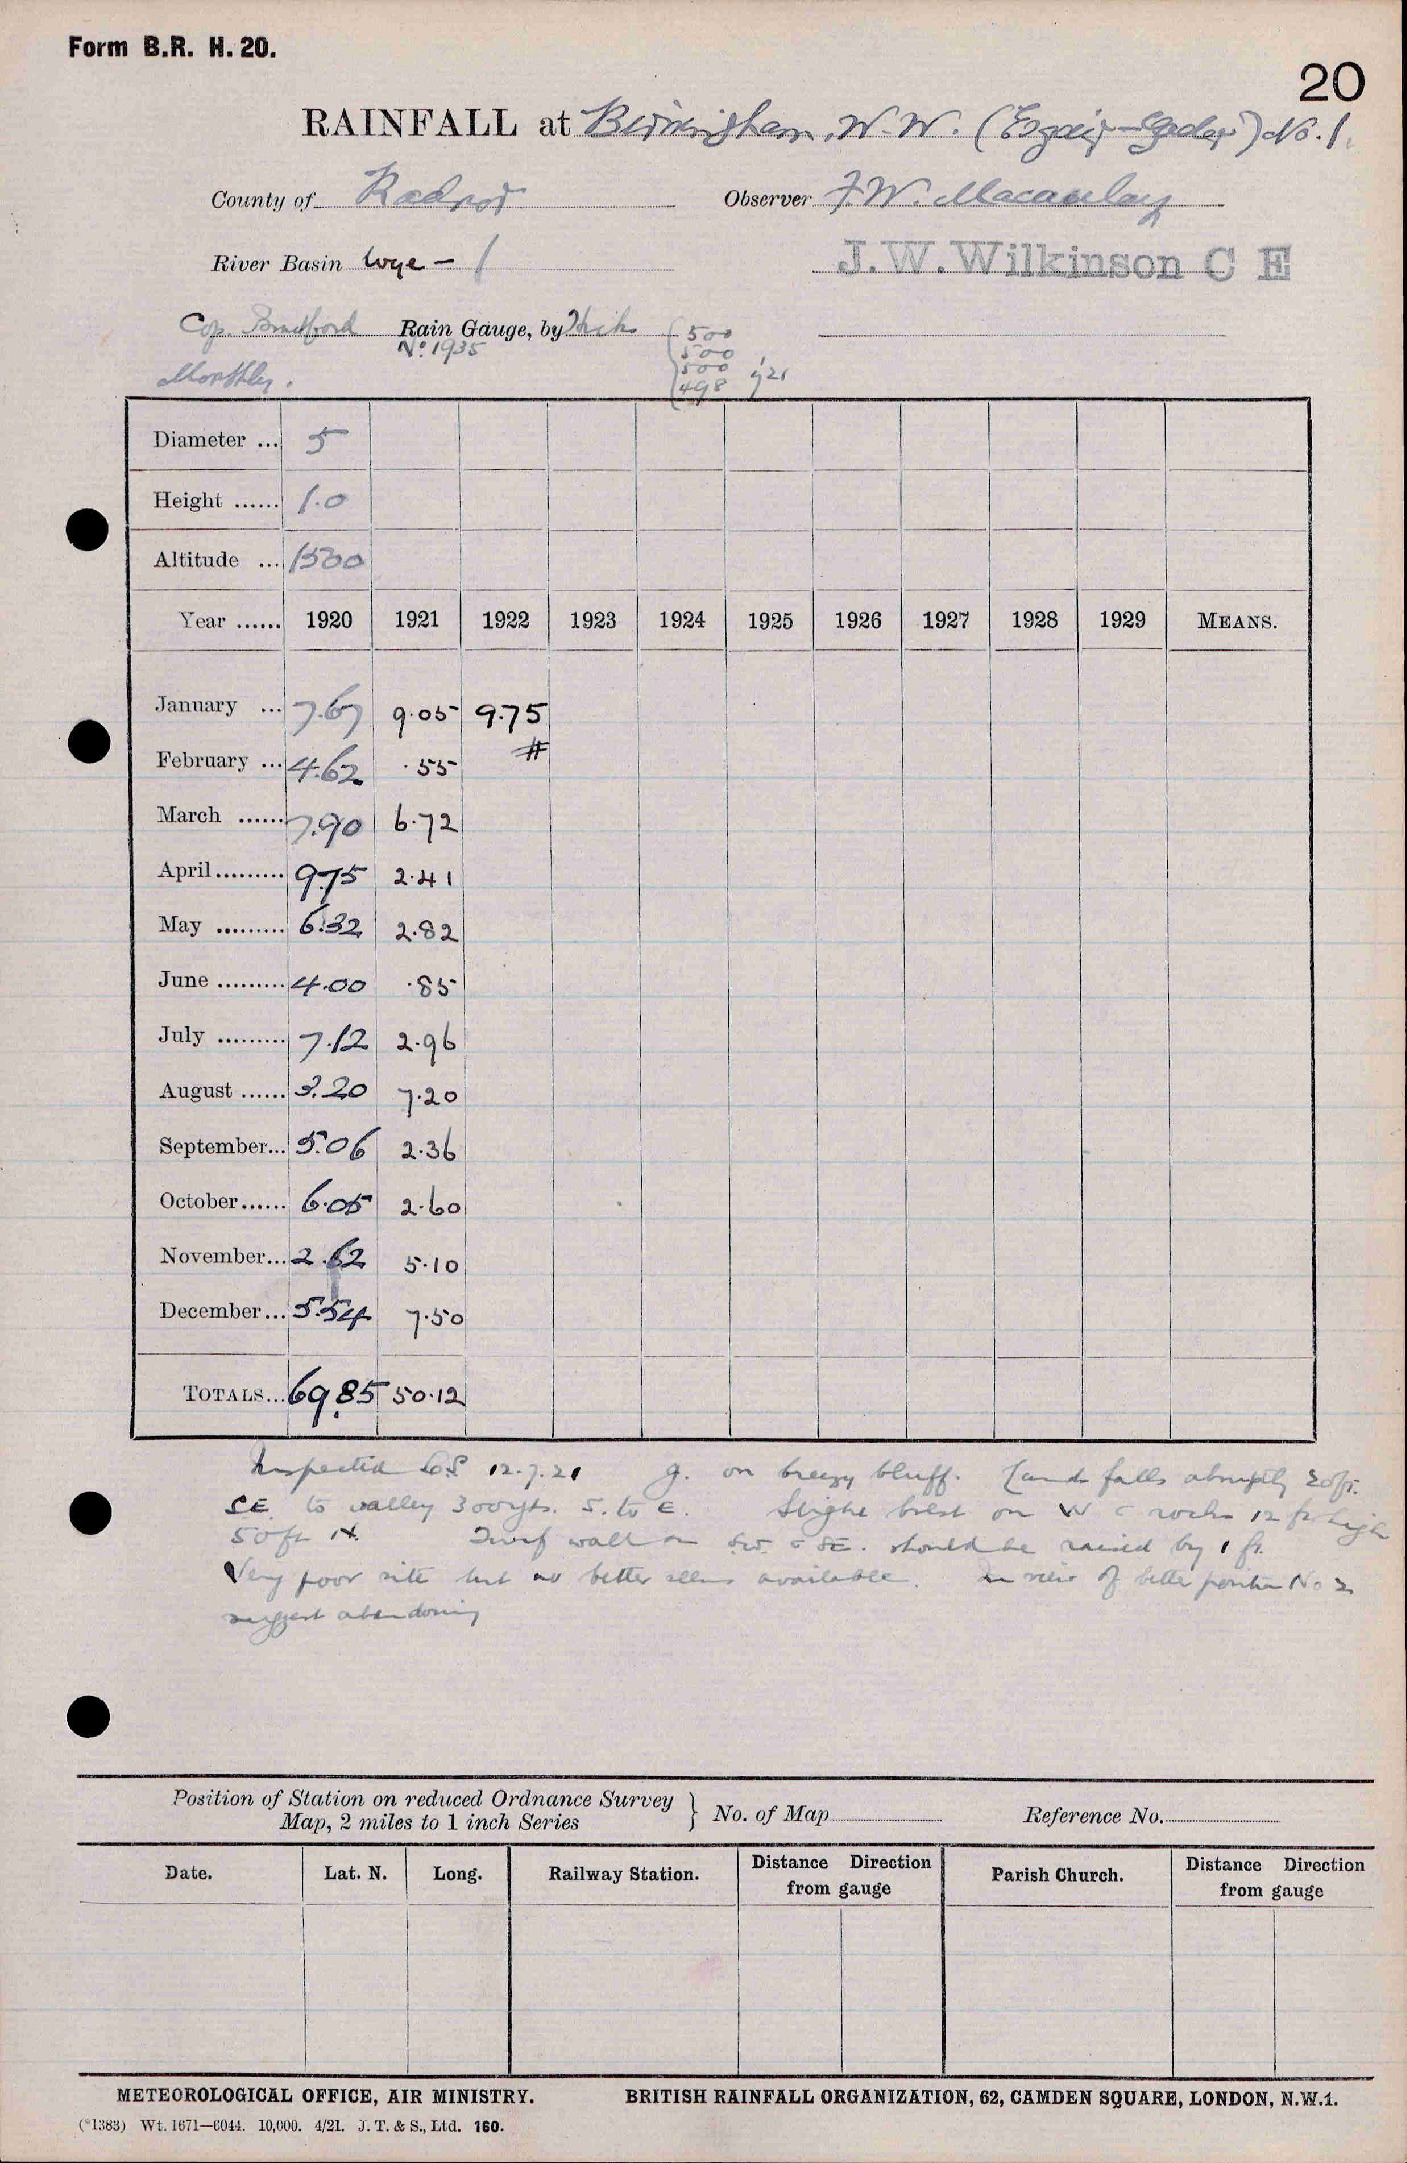 Form B.R. H. 20.
20
RAINFALL at Birmingham, W.W. (Esgair-Gader) No. 1.
County of Radnor Observer F.W. Macaulay
River Basin Wye - 1 J.W. Wilkinson C E
Cop. Bradford Rain Gauge, by Hicks
No. 1935
500
500
500
498 j 21
Monthly.
Diameter ... 5
Height ...... 1.0
Altitude ... 1500
Year ...... 1920 1921 1922 1923 1924 1925 1926 1927 1928 1929 MEANS.
January ... 7.67 9.05 9.75
February ... 4.62 .55 #
March ...... 7.90 6.72
April ......... 9.75 2.41
May ......... 6.32 2.82
June ......... 4.00 .85
July ......... 7.12 2.96
August ...... 3.20 7.20
September... 5.06 2.36
October...... 6.05 2.60
November... 2.62 5.10
December... 5.54 7.50
TOTALS... 69.85 50.12
Inspected 12.7.21 g. on breezy bluff. Land falls abruptly 20ft.
SE. to valley 300yds. S. to E. Slight on W rocks 12 ft high
50ft N. Dwarf wall on SW. SE. should be raised by 1 ft.
Very poor site but no better available. In view of better position No 2
suggest abandoning
Position of Station on reduced Ordnance Survey
Map, 2 miles to 1 inch Series } No. of Map Reference No.
Date. Lat. N. Long. Railway Station. Distance Direction from gauge Parish Church. Distance Direction from gauge
METEOROLOGICAL OFFICE, AIR MINISTRY. BRITISH RAINFALL ORGANIZATION, 62, CAMDEN SQUARE, LONDON, N.W.1.
(*1383) Wt. 1671—6044. 10,000. 4/21. J. T. & S., Ltd. 160.